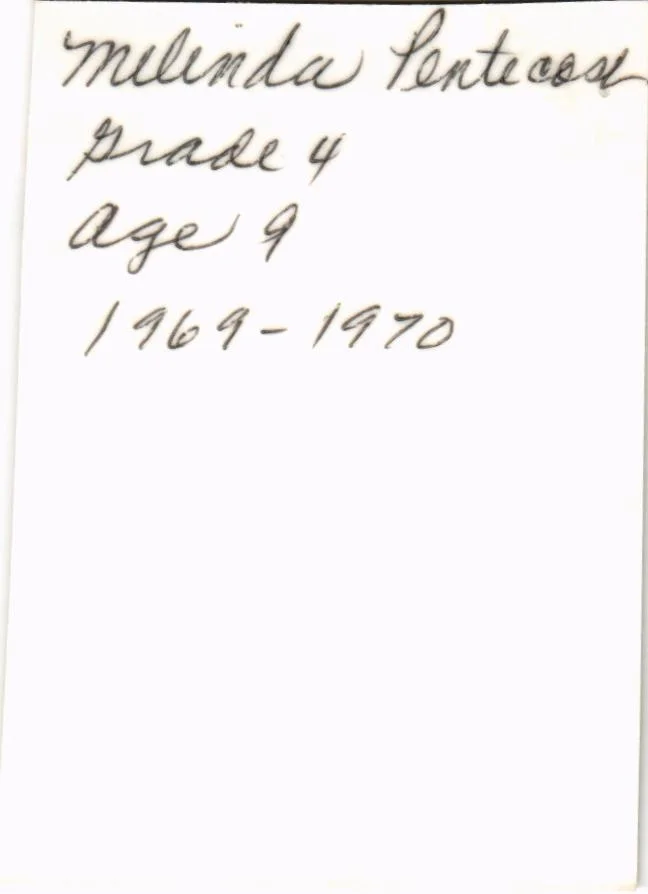 Melinda Pentecost
Grade 4
Age 9
1969-1970